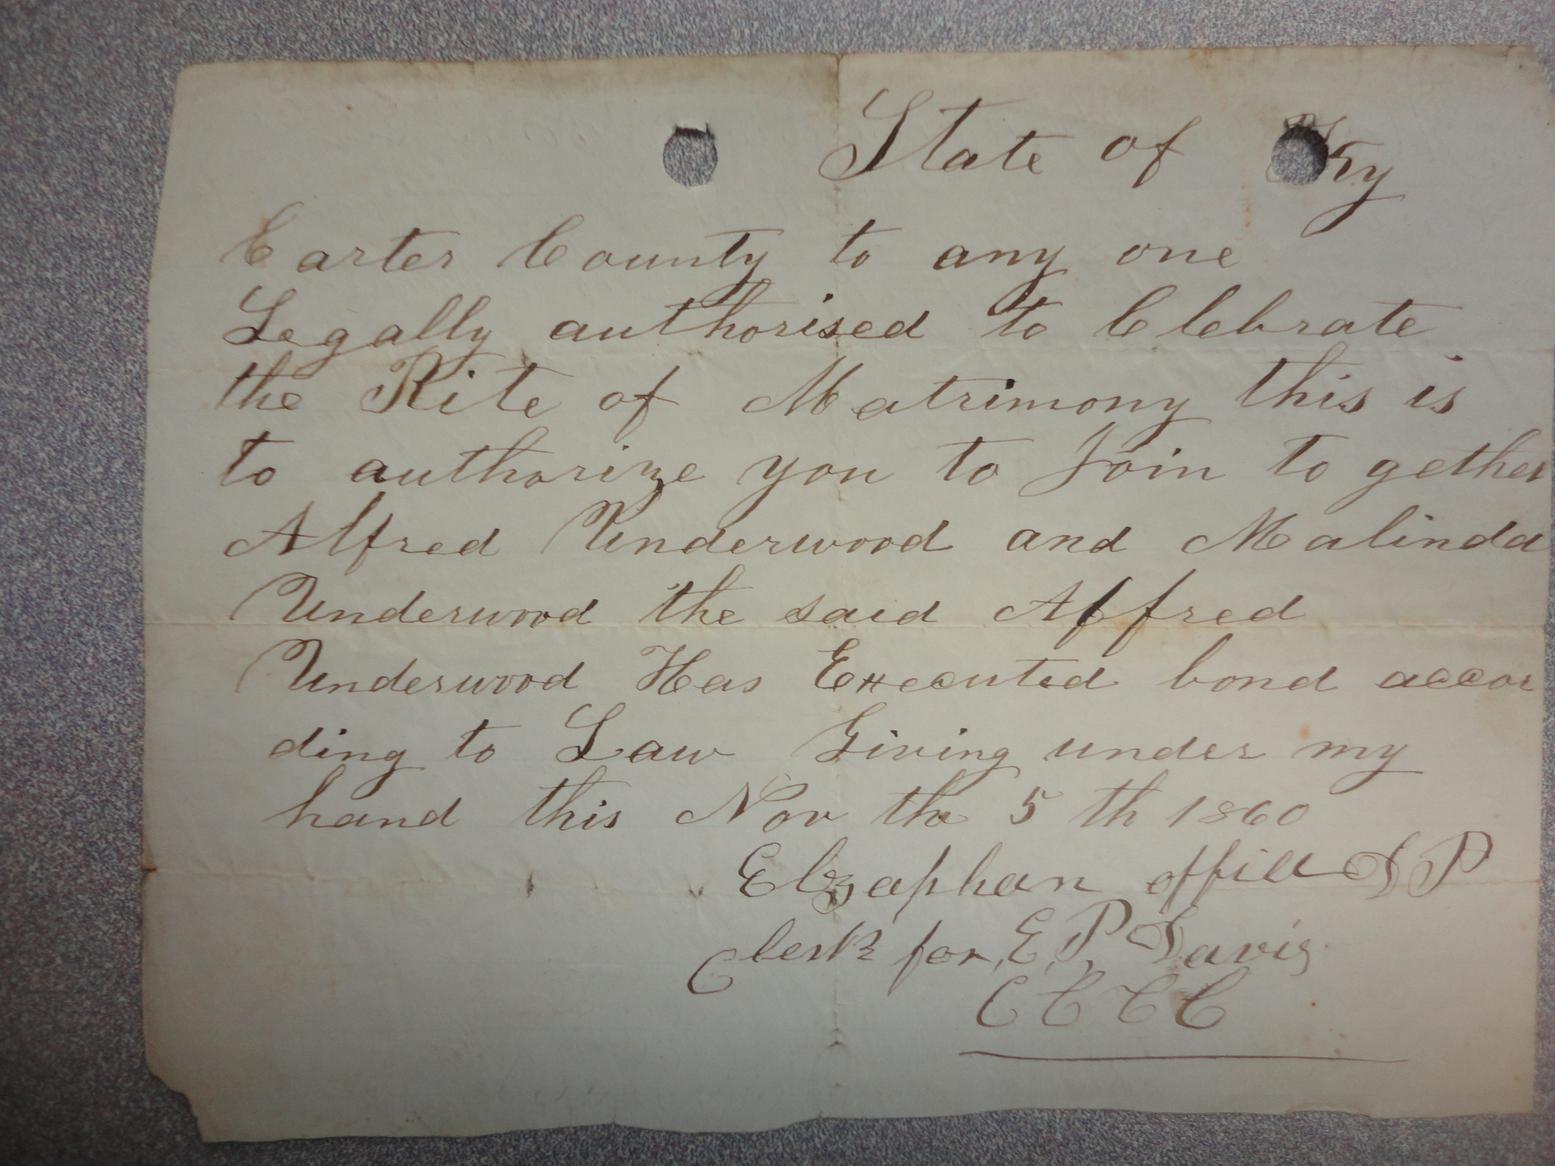 State of Ky
Carter County to any one
Legally authorised to Clebrate
the Rite of Matrimony this is
to authorize you to Join to gether
Alfred Underwood and Malinda
Underwood the said Alfred
Underwood Has Executed bond accor
ding to Law Giving under my
hand this Nov the 5 th 1860
Elzaphan offill D P
Clerk for E. P. Davis
C C C C